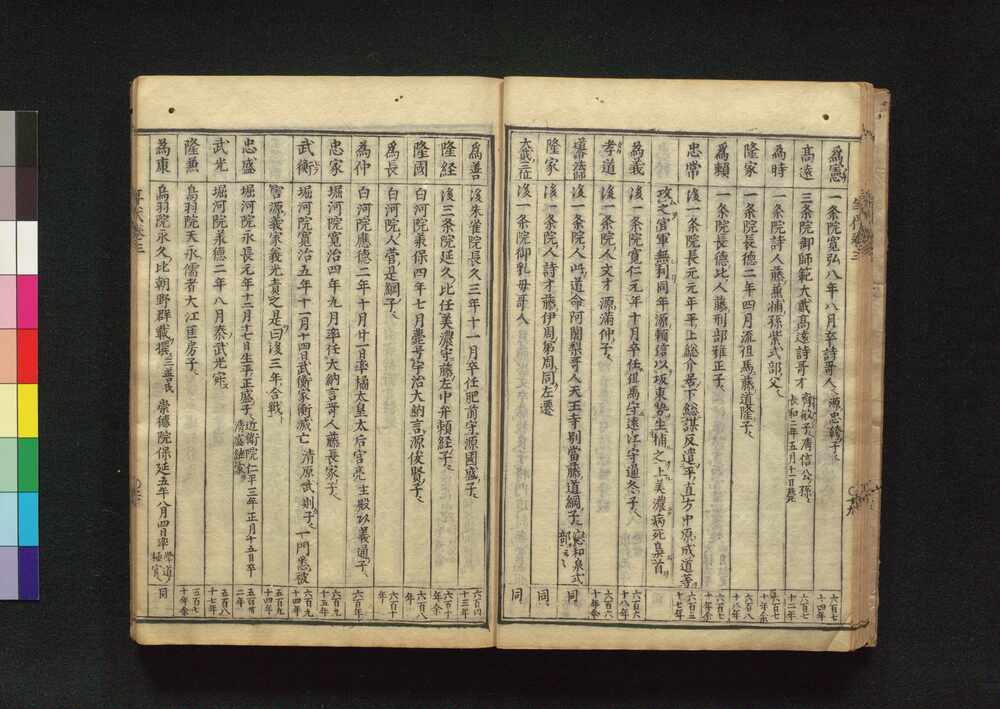 為憲 一条院寛弘八年八月卒詩哥人源忠幹子 六百七十四年
高遠 三条院御師範大貳高遠詩哥才 斉敏子清信公孫 長和二年五月十二日薨 六百七十二年
為時 一条院詩人藤兼輔孫紫式部父 六百七十年余
隆家 一条院長徳二年四月流徂馬藤道隆子 六百八十八年
為頼 一条院長徳比人藤刑部雅正子 六百七十年余
忠常 後一条院長元元年平上総介於下総謀反遣平直方中原成道等 六百五十七年
攻之官軍無利同年源頼信以坂東勢生捕之上美濃病死梟首
為義 後一条院寛仁元年十月卒任徂馬守遠江守通冬子 六百六十八年
孝道 後一条院人文才源満仲子 六百六十年余
道命法師 後一条院人此道命阿闍梨哥人天王寺別當藤道綱子 密和泉式部云々 同
隆家 後一条院人詩才藤伊周弟周同左遷 同
大貳三位 後一条院御乳母哥人 同
為善 後朱雀院長久三年十一月卒任肥前守源國盛子 六百四十三年
隆経 後三条院延久比任美濃守藤左中弁頼経子 六百十年余
隆國 白河院承保四年七月薨号宇治大納言源俊賢子 六百八年
為長 白河院人實是綱子 六百十年
為仲 白河院應徳二年十月廿一日卒橘太皇太后宮亮主殿以義通子 六百年
忠家 堀河院寛治四年九月率任大納言哥人藤長家子 六百九十五年
武衡 堀河院寛治五年十一月十四日武衡家衡滅亡清原武則子一門悉被 六百九十四年
害源義家義光責之是曰後三年合戦 五百九十四年
忠盛 堀河院永長元年十二月十七日生平正盛子 近衛院仁平三年正月十五日卒 清盛継家 五百四十二年
武光 堀河院承徳二年八月秦武光死 五百八十七年
隆兼 鳥羽院天永儒者大江匡房子 五百七十年余
為康 鳥羽院永久比朝野群載撰三善氏 崇徳院保延五年八月四日卒 同